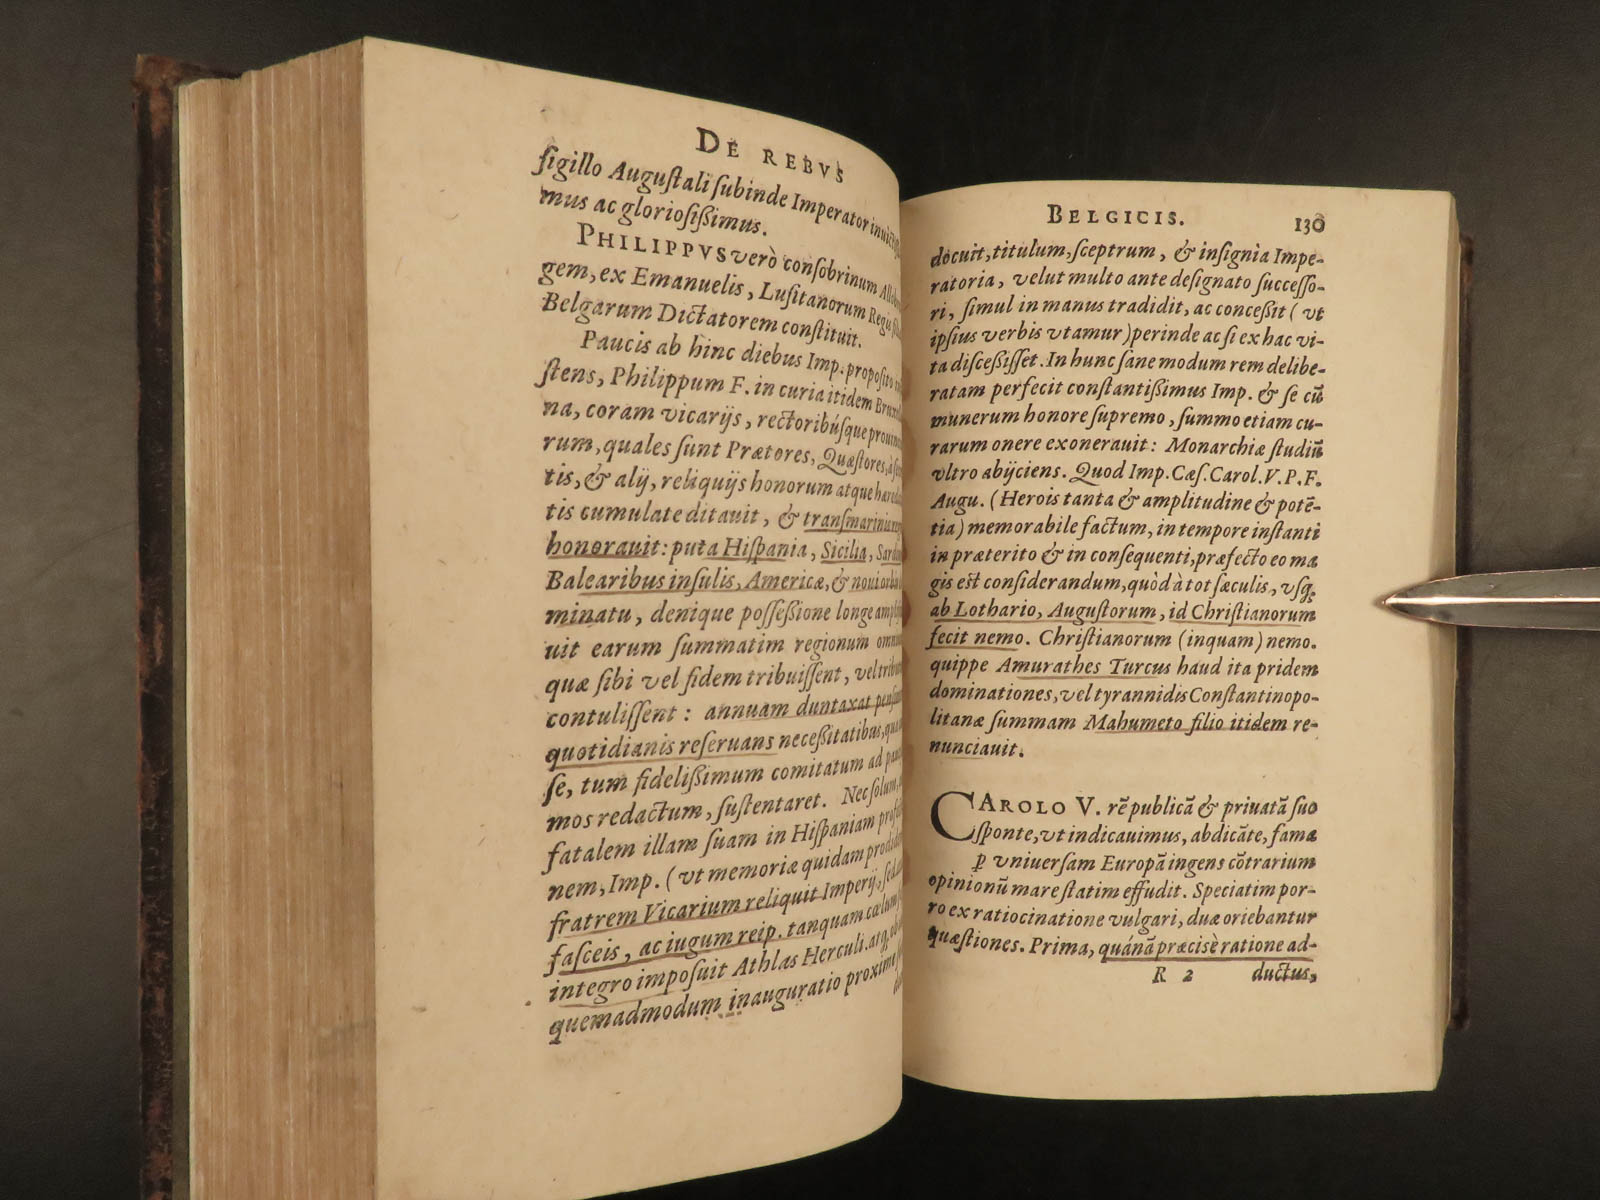 DE REBVS
sigillo Augustali subinde Imperator
mus ac gloriosißimus.
PHILIPPVS verò consobrinum
gem, ex Emanuelis, Lusitanorum
Belgarum Dictatorem constituit.
Paucis ab hinc diebus Imp. proposito
stens, Philippum F. in curia itidem
na, coram vicarijs, rectoribúsque
rum, quales sunt Prætores, Quæstores,
tis, & alij, reliquijs honorum atque
tis cumulate ditauit, &
honorauit: puta Hispania, Sicilia,
Balearibus insulis, Americæ, &
minatu, denique possessione longe
uit earum summatim regionum
quæ sibi vel fidem tribuissent,
contulissent: annuam duntaxat
quotidianis reseruans necessitatibus,
se, tum fidelissimum comitatum ad
mos redactum, sustentaret. Nec solum,
fatalem illam suam in Hispaniam
nem, Imp. (vt memoriæ quidam
fratrem Vicarium reliquit Imperij,
fasceis, ac iugum reip. tanquam
integro imposuit Athlas Herculi. atq,
quemadmodum inauguratio
BELGICIS. 130
docuit, titulum, sceptrum, & insignia Impe-
ratoria, velut multo ante designato successo-
ri, simul in manus tradidit, ac concessit (vt
ipsius verbis vtamur) perinde ac si ex hac vi-
ta discessisset. In hunc sane modum rem delibe-
ratam perfecit constantißimus Imp. & se cū
munerum honore supremo, summo etiam cu-
rarum onere exonerauit: Monarchiæ studiū
vltro abijciens. Quod Imp. Cæs. Carol. V. P. F.
Augu. (Herois tanta & amplitudine & potē-
tia) memorabile factum, in tempore instanti
in præterito & in consequenti, præfecto eo ma
gis est considerandum, quòd à tot sæculis, vsq,
ab Lothario, Augustorum, id Christianorum
fecit nemo. Christianorum (inquam) nemo.
quippe Amurathes Turcus haud ita pridem
dominationes, vel tyrannidis Constantinopo-
litanæ summam Mahumeto filio itidem re-
nunciauit.
CAROLO V. rēpublicā & priuatā suo
sponte, vt indicauimus, abdicāte, famæ
p vniuersam Europā ingens cōtrarium
opinionū mare statim effudit. Speciatim por-
ro ex ratiocinatione vulgari, duæ oriebantur
quæstiones. Prima, quánā præcisè ratione ad-
R 2 ductus,